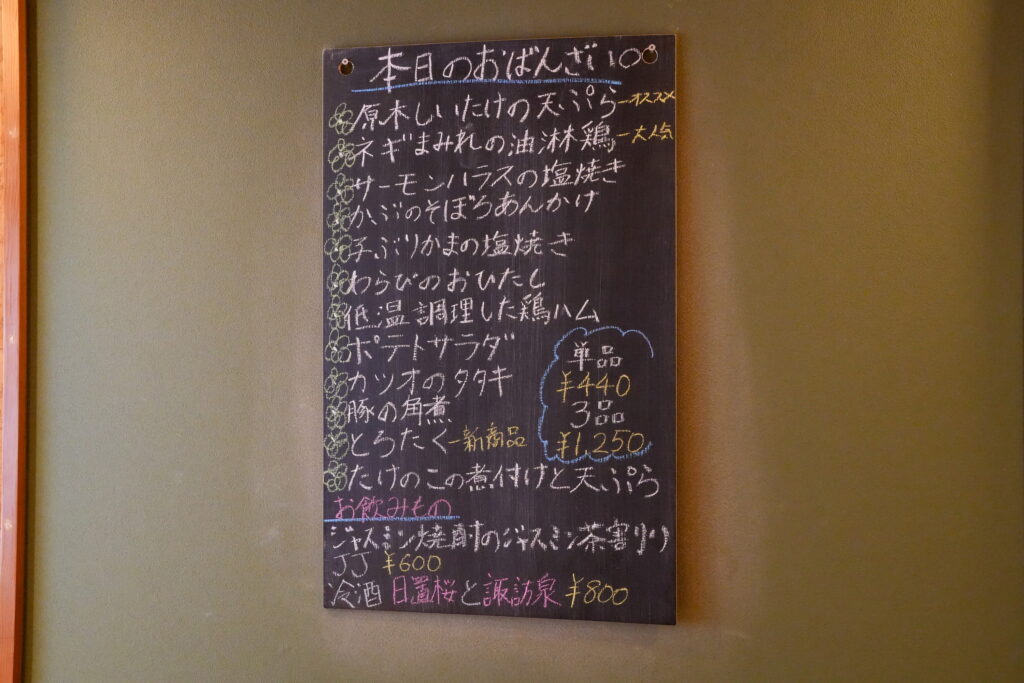 本日のおばんざい
原木しいたけの天ぷら―オススメ
ネギまみれの油淋鶏―大人気
サーモンハラスの塩焼き
かぶのそぼろあんかけ
子ぶりかまの塩焼き
わらびのおひたし
低温調理した鶏ハム
ポテトサラダ
カツオのタタキ
豚の角煮
とろたく―新商品
たけのこの煮付けと天ぷら
単品
¥440
3品
¥1,250
お飲みもの
ジャスミン焼酎のジャスミン茶割り
JJ ¥600
冷酒 日置桜と諏訪泉 ¥800